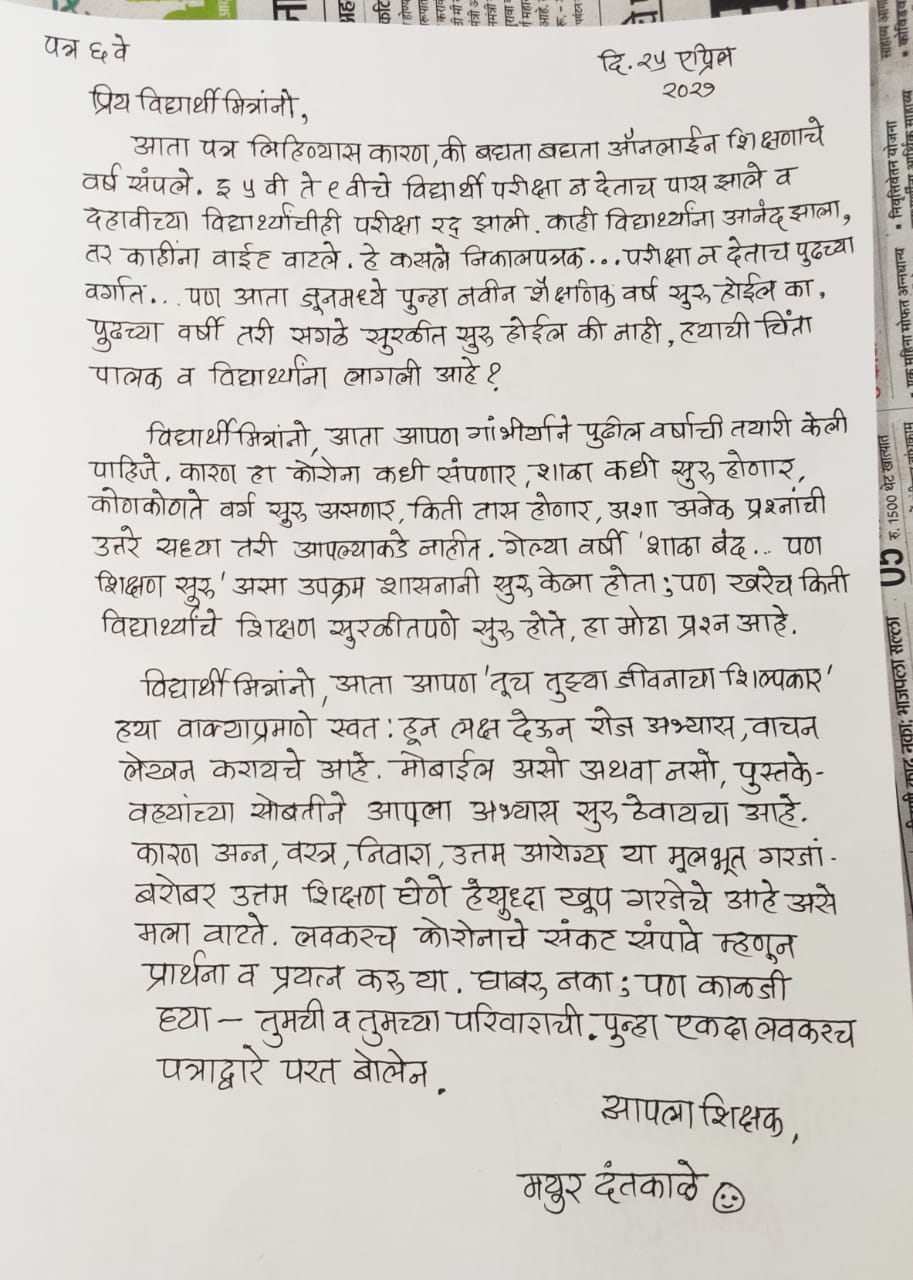 पत्र ६ वे
दि. २५ एप्रिल
२०२१
प्रिय विद्यार्थी मित्रांनो,
आता पत्र लिहिण्यास कारण, की बघता बघता ऑनलाईन शिक्षणाचे
वर्ष संपले. इ ५ वी ते ९ वीचे विद्यार्थी परीक्षा न देताच पास झाले व
दहावीच्या विद्यार्थ्यांचीही परीक्षा रद्द झाली. काही विद्यार्थ्यांना आनंद झाला,
तर काहींना वाईट वाटले. हे कसले निकालपत्रक... परीक्षा न देताच पुढच्या
वर्गात... पण आता जूनमध्ये पुन्हा नवीन शैक्षणिक वर्ष सुरु होईल का,
पुढच्या वर्षी तरी सगळे सुरळीत सुरु होईल की नाही, ह्याची चिंता
पालक व विद्यार्थ्यांना लागली आहे?
विद्यार्थी मित्रांनो, आता आपण गांभीर्याने पुढील वर्षाची तयारी केली
पाहिजे. कारण हा कोरोना कधी संपणार, शाळा कधी सुरु होणार,
कोणकोणते वर्ग सुरु असणार, किती तास होणार, अशा अनेक प्रश्नांची
उत्तरे सध्या तरी आपल्याकडे नाहीत. गेल्या वर्षी 'शाळा बंद... पण
शिक्षण सुरु' असा उपक्रम शासनानी सुरु केला होता; पण खरेच किती
विद्यार्थ्यांचे शिक्षण सुरळीतपणे सुरु होते, हा मोठा प्रश्न आहे.
विद्यार्थी मित्रांनो, आता आपण 'तूच तुझ्या जीवनाचा शिल्पकार'
ह्या वाक्याप्रमाणे स्वत: हून लक्ष देऊन रोज अभ्यास, वाचन
लेखन करायचे आहे. मोबाईल असो अथवा नसो, पुस्तके-
वह्यांच्या सोबतीने आपला अभ्यास सुरु ठेवायचा आहे.
कारण अन्न, वस्त्र, निवारा, उत्तम आरोग्य या मूलभूत गरजां-
बरोबर उत्तम शिक्षण घेणे हेसुध्दा खूप गरजेचे आहे असे
मला वाटते. लवकरच कोरोनाचे संकट संपावे म्हणून
प्रार्थना व प्रयत्न करु या. घाबरु नका; पण काळजी
घ्या – तुमची व तुमच्या परिवाराची. पुन्हा एकदा लवकरच
पत्राद्वारे परत बोलेन.
आपला शिक्षक,
मयुर दंतकाळे